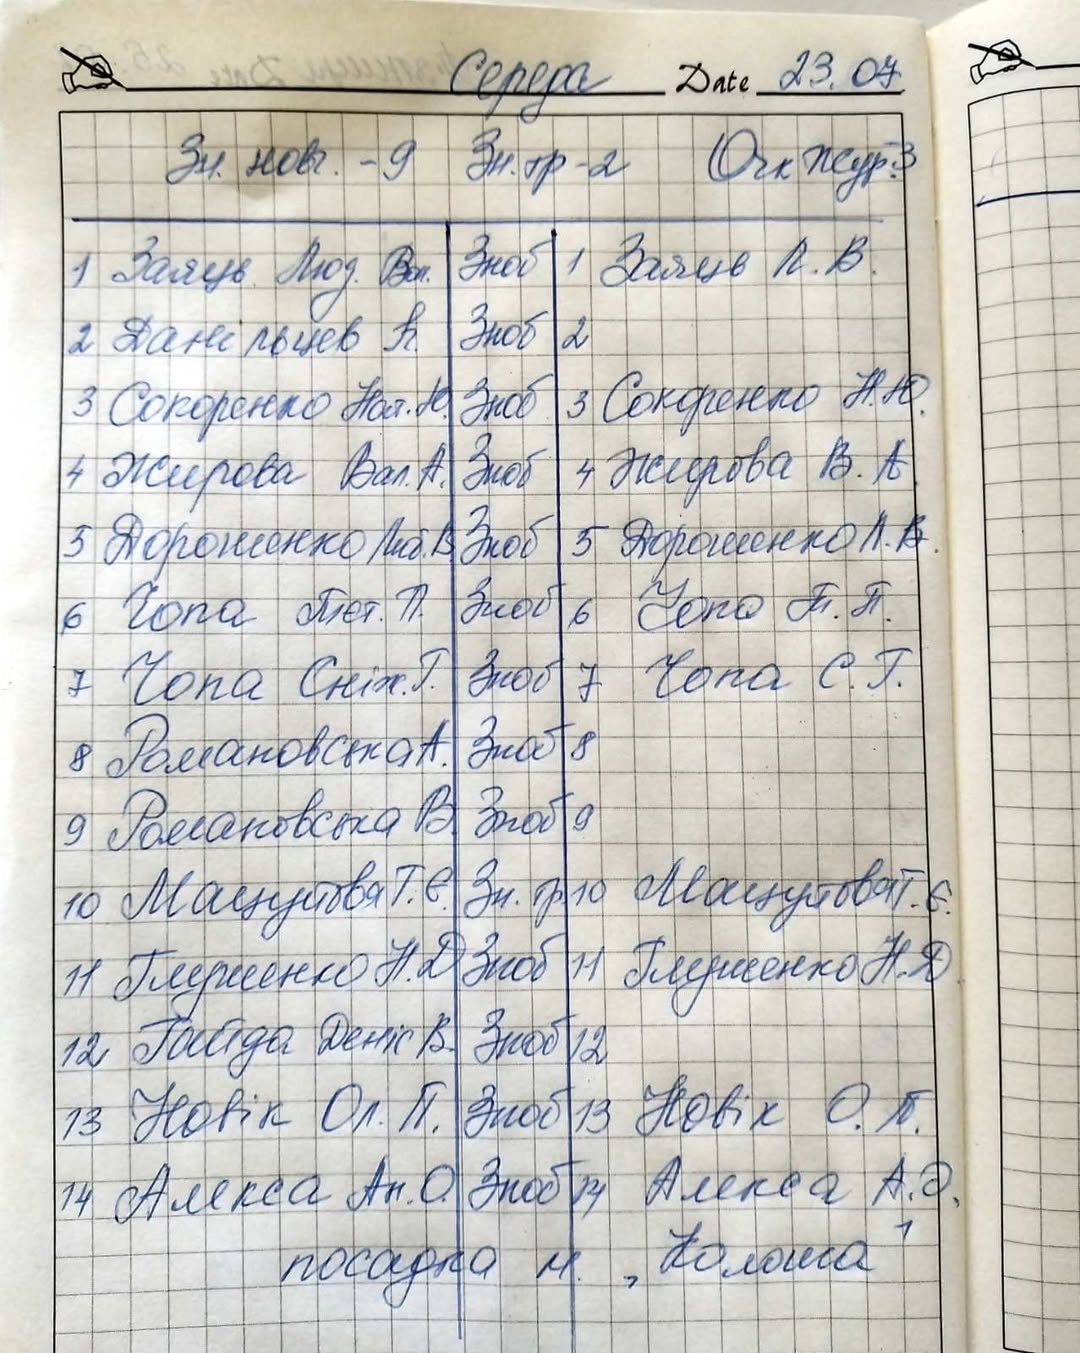 Середа Date 23.07
Зн. новг. -9 Зн. тр -2 Очк Жур. 3
1 Заяць Люд. Вол. Зноб 1 Заяць Л. В.
2 Данільцев А. Зноб 2
3 Сокоренко Нат. Ю. Зноб 3 Сокоренко Н. Ю.
4 Жирова Вал. А. Зноб 4 Жирова В. А.
5 Дорошенко Люб. В. Зноб 5 Дорошенко Л. В.
6 Чопа Тет. П. Зноб 6 Чопа Т. П.
7 Чопа Сніж. Г. Зноб 7 Чопа С. Г.
8 Романовська А. Зноб 8
9 Романовська В. Зноб 9
10 Т. Є. Зн. тр. 10 Т. Є.
11 Глушенко Н. Д Зноб 11 Глушенко Н. Д
12 Гайда Деніс В. Зноб 12
13 Новік Ол. П. Зноб 13 Новік О. П.
14 Алекса Ан. О. Зноб 14 Алекса А. О.
посадка м. "Колоша"